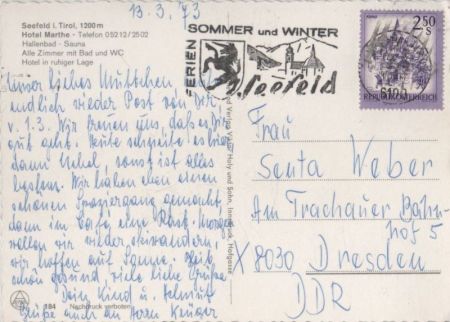 13.3.73
Seefeld i. Tirol, 1200 m
Hotel Marthe - Telefon 05212/2502
Hallenbad - Sauna
Alle Zimmer mit Bad und WC
Hotel in ruhiger Lage
FERIEN
SOMMER und WINTER
Seefeld
2.50
S
6100
REPUBLIK ÖSTERREICH
Unser liebes Muttchen
endlich wieder Post von Dir
v. 1.3. Wir freuen uns, daß es Dir
gut geht. Heute schneite es hier
dann Nebel, sonst ist alles
bestens. Wir haben eben einen
schönen Spaziergang gemacht,
dann im Café eine Rast. Morgen
wollen wir wieder
wir hoffen auf Sonne. Bleib
schön gesund viele liebe Grüße
Dein Kind u. Helmut
Grüße auch an Herrn Krüger
Frau
Senta Weber
Am Trachauer Bahn-
hof 5
X 8030 Dresden
DDR
184
Nachdruck verboten